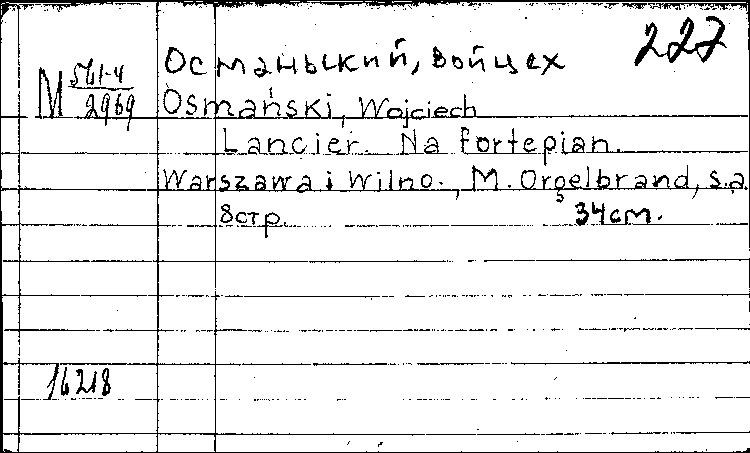 227
Османьский, Войцех
М 561-4
2969
Osmański, Wojciech
Lancier. Na fortepian.
Warszawa i Wilno., M. Orgelbrand, s.a.
8стр. 34см.
16218